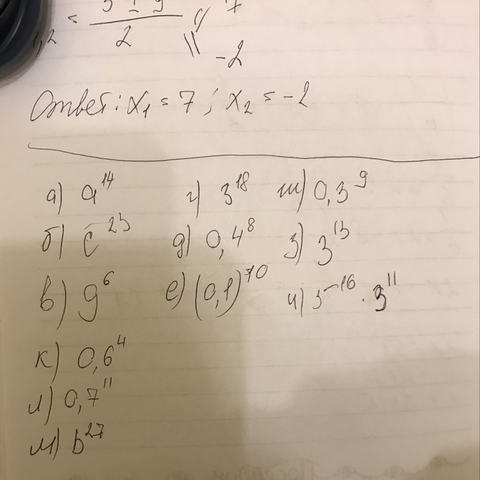 1,2 = 5 ± 9 / 2 7
-2
Ответ: x₁ = 7 ; x₂ = -2
а) a¹⁴ г) 3¹⁸ ж) 0,3⁹
б) c²³ д) 0,4⁸ з) 3¹³
в) g⁶ е) (0,1)⁷⁰ и) 3⁻¹⁶ · 3¹¹
к) 0,6⁴
л) 0,7¹¹
м) b²⁷